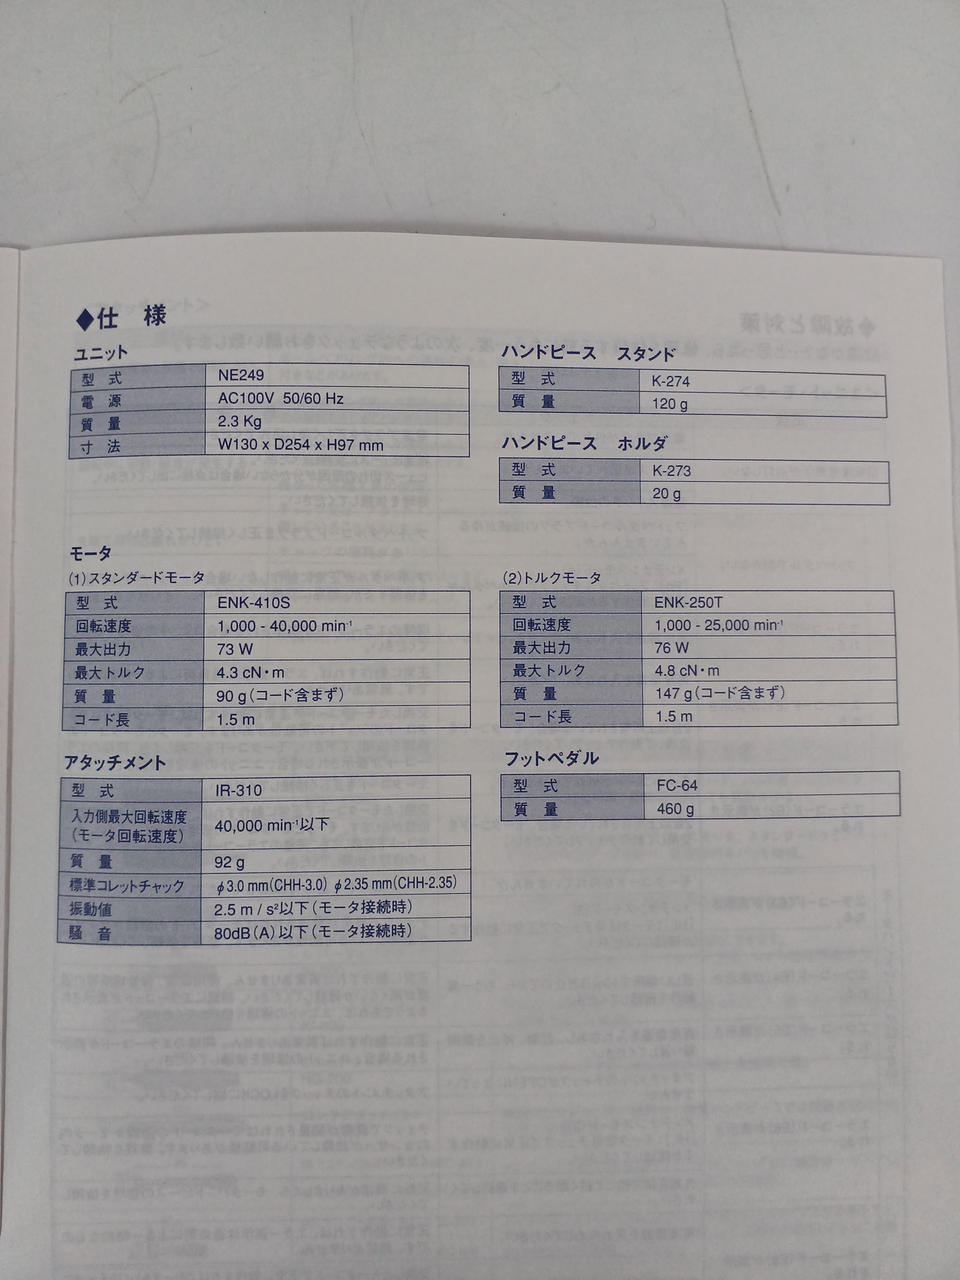 ◆仕 様
ユニット
型 式 NE249
電 源 AC100V 50/60 Hz
質 量 2.3 Kg
寸 法 W130 x D254 x H97 mm
ハンドピース スタンド
型 式 K-274
質 量 120 g
ハンドピース ホルダ
型 式 K-273
質 量 20 g
モータ
(1)スタンダードモータ
型 式 ENK-410S
回転速度 1,000 - 40,000 min⁻¹
最大出力 73 W
最大トルク 4.3 cN・m
質 量 90 g(コード含まず)
コード長 1.5 m
(2)トルクモータ
型 式 ENK-250T
回転速度 1,000 - 25,000 min⁻¹
最大出力 76 W
最大トルク 4.8 cN・m
質 量 147 g(コード含まず)
コード長 1.5 m
アタッチメント
型 式 IR-310
入力側最大回転速度
(モータ回転速度) 40,000 min⁻¹以下
質 量 92 g
標準コレットチャック φ3.0 mm(CHH-3.0) φ2.35 mm(CHH-2.35)
振動値 2.5 m / s²以下(モータ接続時)
騒 音 80dB(A)以下(モータ接続時)
フットペダル
型 式 FC-64
質 量 460 g